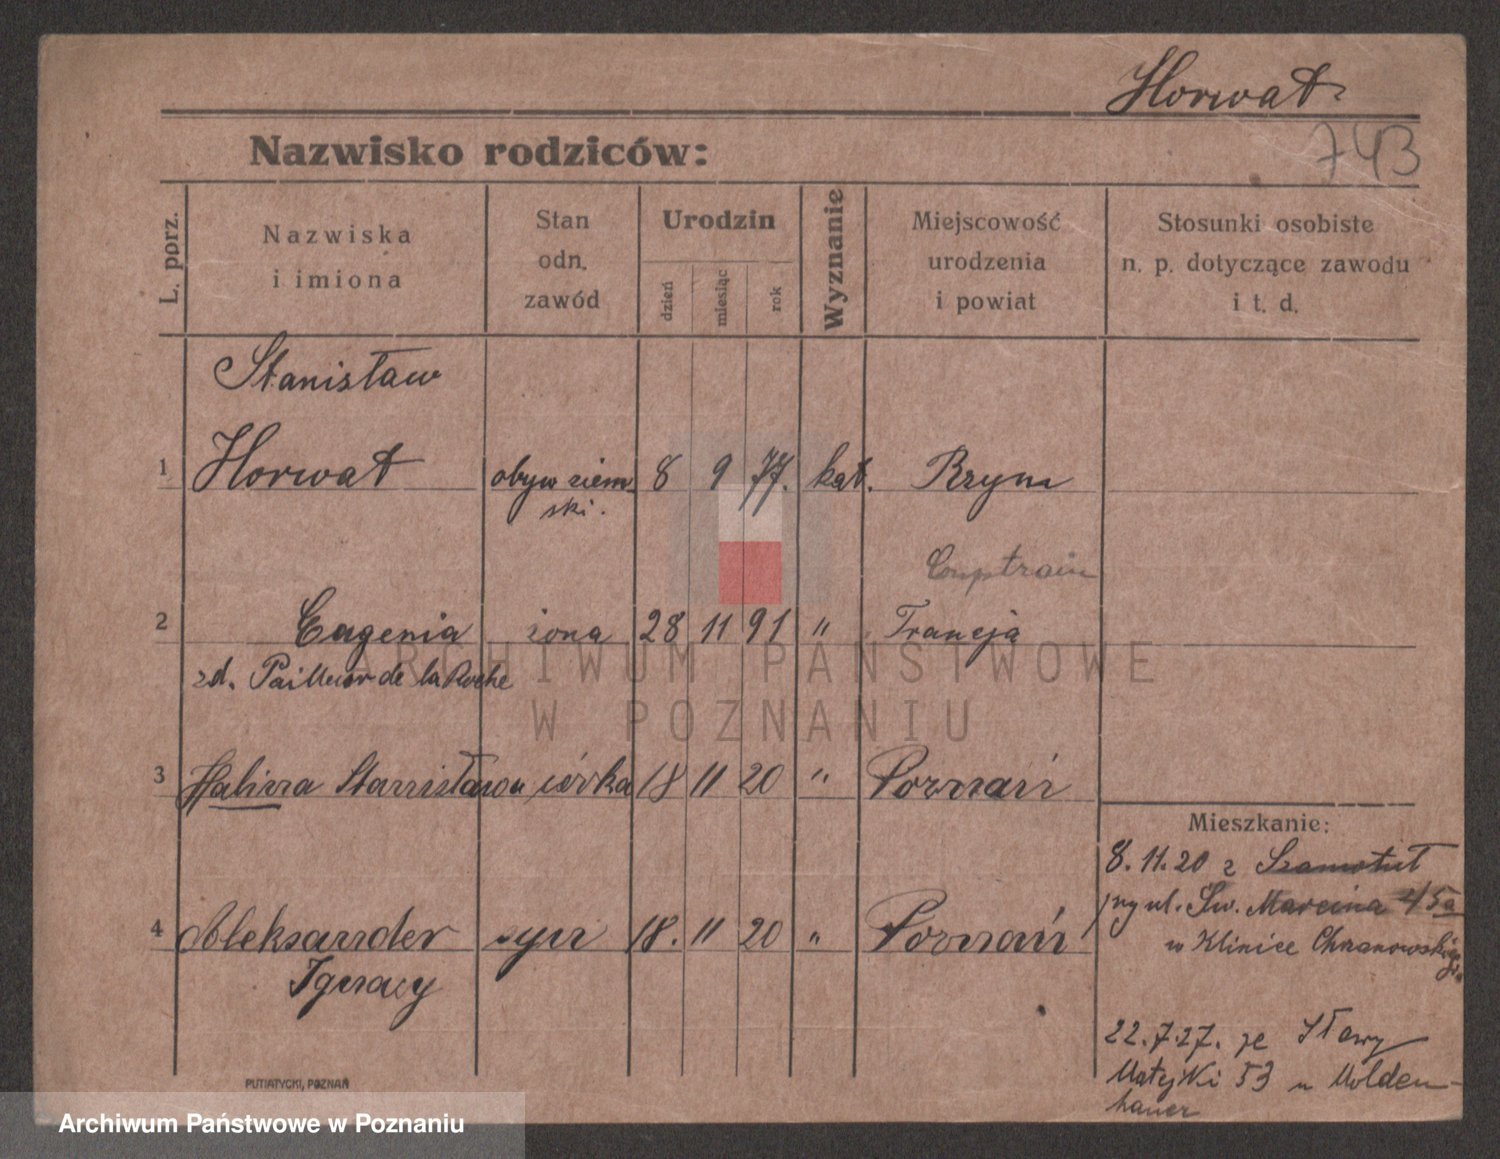 Horwat
743
Nazwisko rodziców:
L. pprz.
Nazwiska
i imiona
Stan
odn.
zawód
Urodzin
dzień
miesiąc
rok
Wyznanie
Miejscowość
urodzenia
i powiat
Stosunki osobiste
n. p. dotyczące zawodu
i t. d.
Stanisław
1 Horwat obyw ziem 8 9 77. kat. Rzym
ski.
2 Eugenia żona 28 11 91 " Francja
zd. de la Roche
3 Halina Stanisława córka 18 11 20 " Poznań
4 Aleksander syn 18. 11 20 " Poznań
Ignacy
Mieszkanie:
8. 11. 20 z Szamotuł
ul. Św. Marcina 45a
w Klinice Chrzanowskiego
22. 7. 27. ze
Matejki 53 u Molden-
hauer
PUTIATYCKI, POZNAŃ
ARCHIWUM PAŃSTWOWE
W POZNANIU
Archiwum Państwowe w Poznaniu